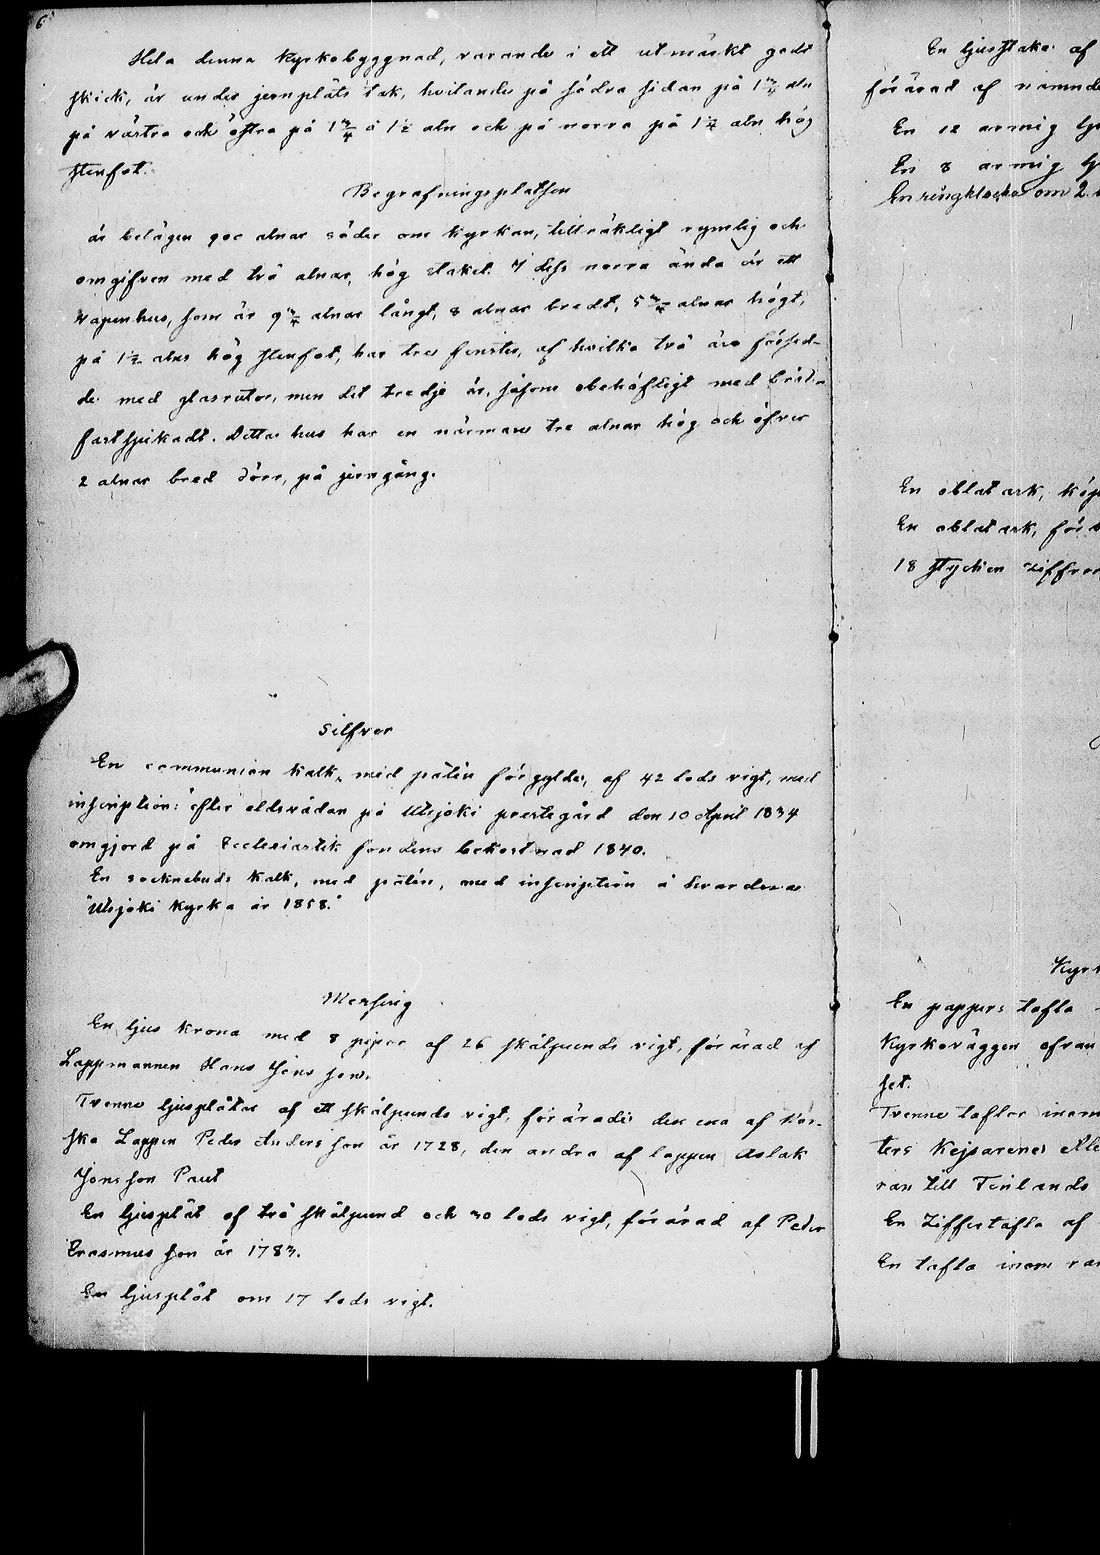 6
Hela denna Kyrkobyggnad, varande i ett utmärkt godt
skick, är under jernplåts tak, hvilande på södra sidan på 1 3/4 aln
på västra och östra på 1 3/4 à 1 1/2 aln och på norra på 1 1/4 aln hög
stenfot.
Begrafningsplatsen
är belägen 900 alnar söder om Kyrkan, tillräkligt rymlig och
omgifven med två alnar, hög staket. I dess norra ända är ett
Vapenhus, som är 9 3/4 alnar långt, 8 alnar bredt, 5 3/4 alnar högt,
på 1 1/2 alns hög stenfot, har tre fenster, af hvilka två äro försed-
de med glasrutor, men det tredje är, såsom obehöfligt med bräd-
fastspikadt. Detta hus har en närmare tre alnar hög och öfver
2 alnar bred dörr, på jerngång.
Silfver
En communion Kalk, med patén förgylde, af 42 lods vigt, med
inscription: efter eldsvådan på Utsjoki prestegård den 10 April 1834
omgjord på Ecclesiastik fondens bekostnad 1840.
En socknebuds Kalk, med patén, med inscription å
"Utsjoki Kyrka år 1858."
Messing
En ljus Krona med 8 pipor af 26 skålpunds vigt, förärad af
Lappmannen Hans Jöns son.
Tvenne ljusplåtar af ett skålpunds vigt, förärade den ena af Nor-
ska Lappen Peder Andersson år 1728, den andra af lappen Aslak
Jönsson Paut
En ljusplåt af två skålpund och 30 lods vigt, förärad af Peder
Erasmusson år 1783.
En ljusplåt om 17 lods vigt.
En ljusstake af
förärad af nämnde
En 12 armig
En 8 armig
En ringklocka om 2
En oblatask, köp
En oblatask, för
18 stycken Ziffror
Kyrk
En pappers tafla
Kyrkoväggen ofvan
set.
Tvenne taflor inom
ters Kejsarenes
ran till Finlands
En Ziffertafla af
En tafla inom ra